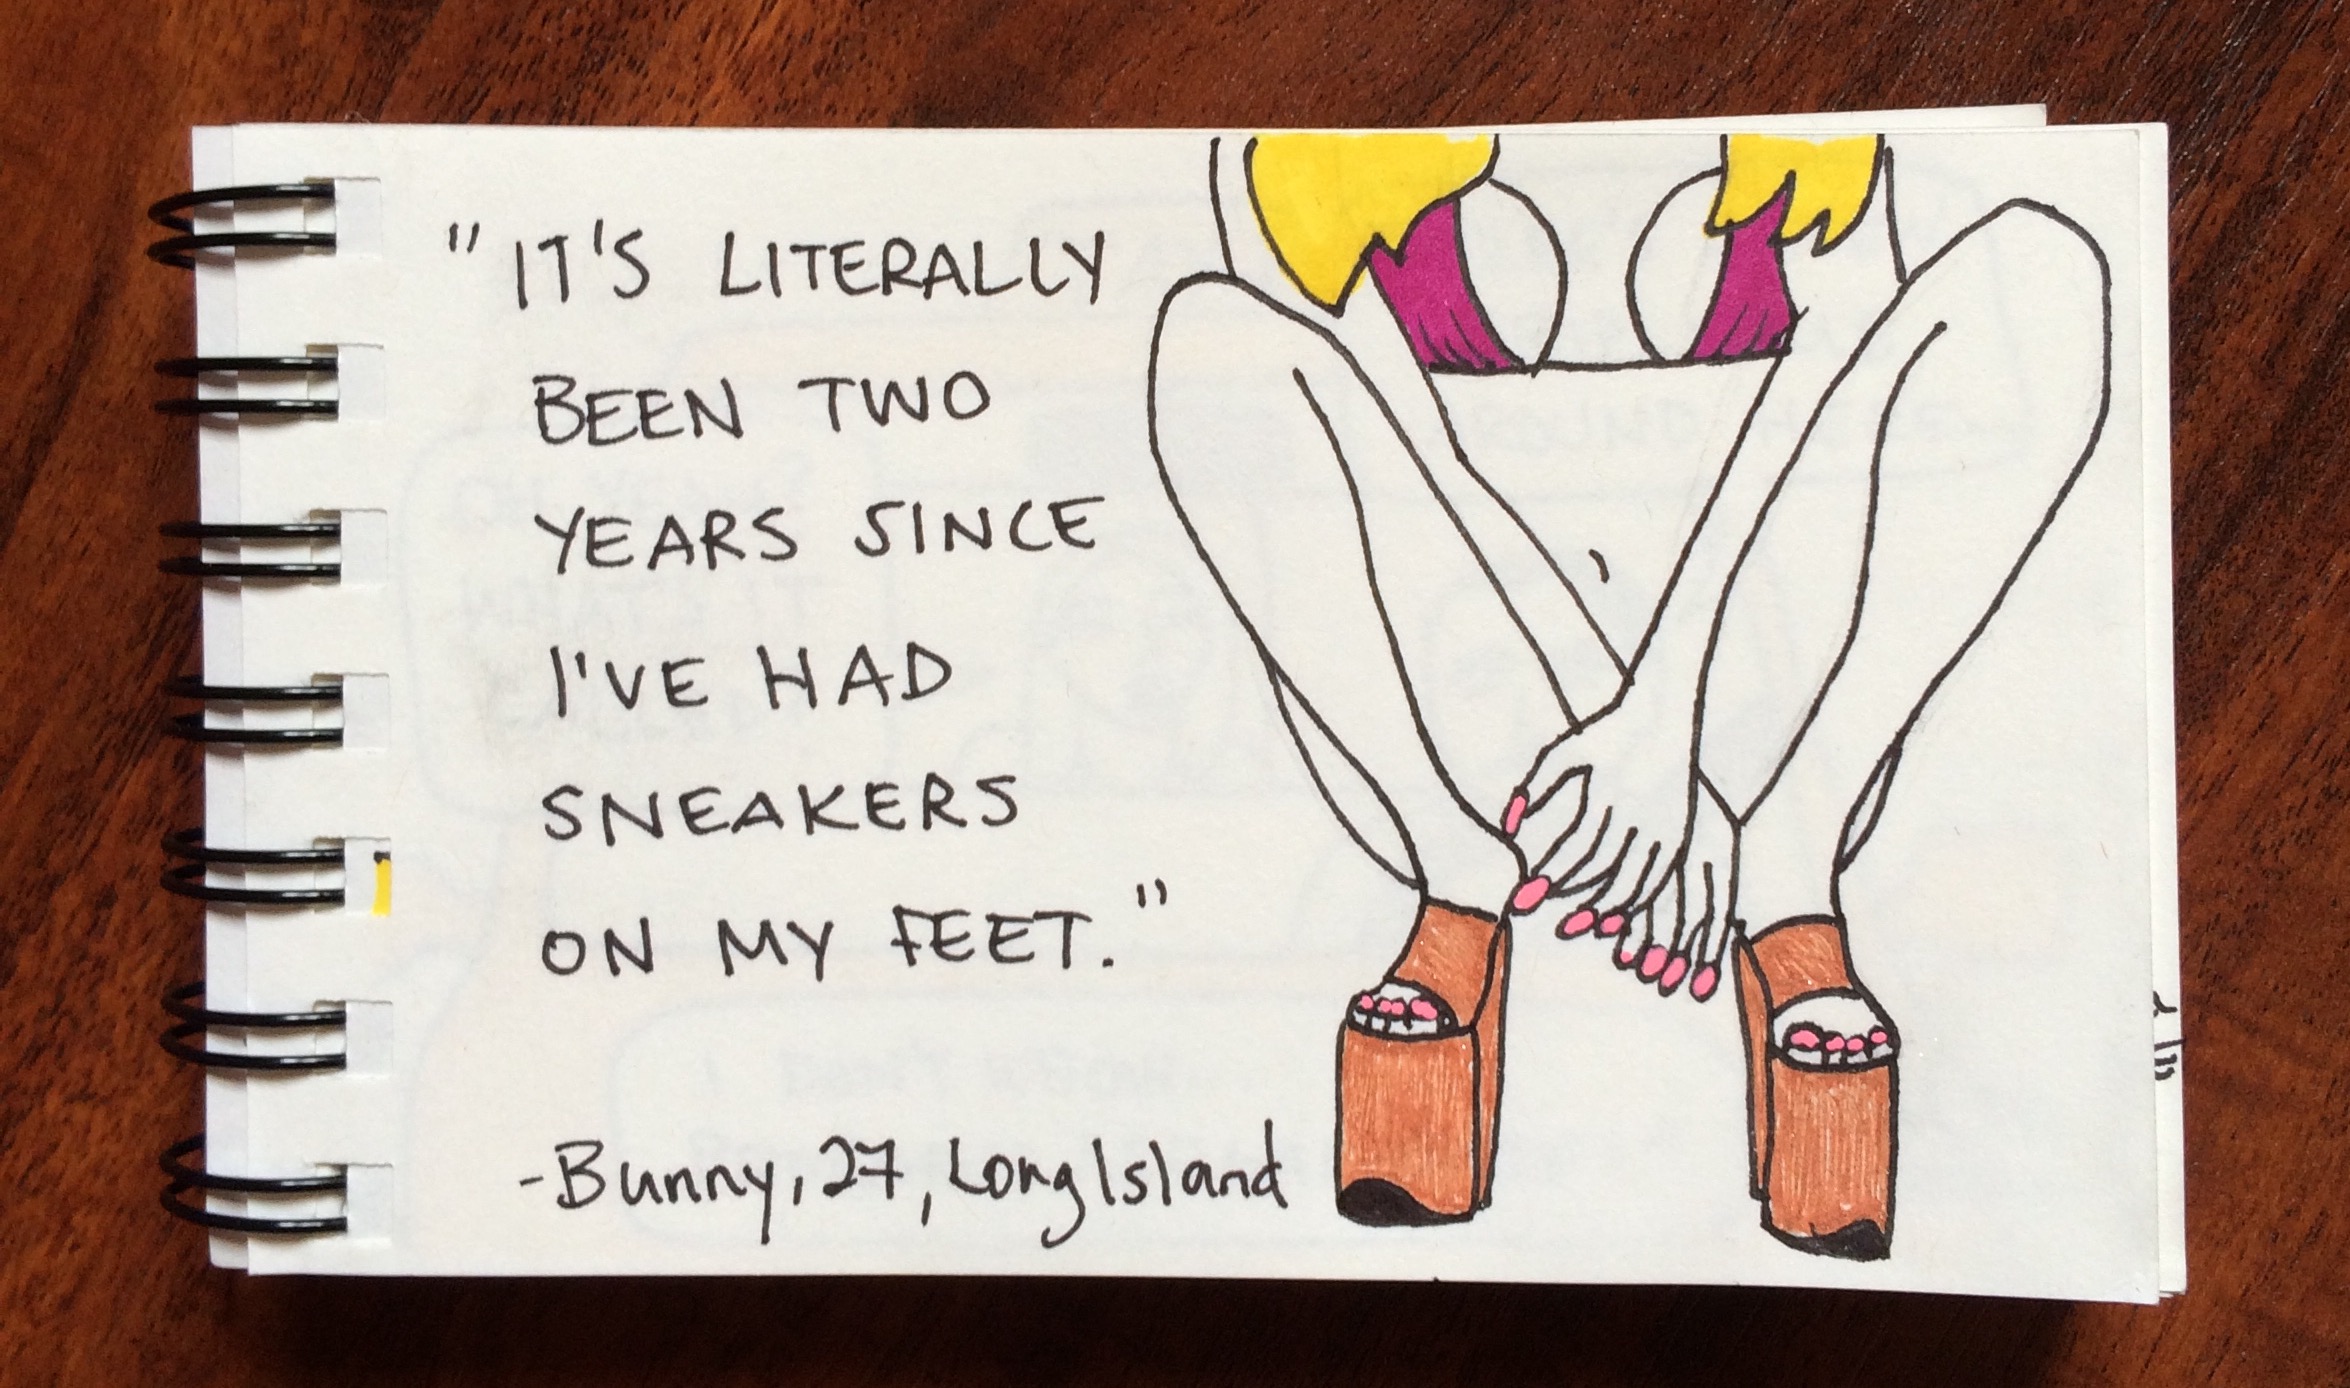 "IT'S LITERALLY
BEEN TWO
YEARS SINCE
I'VE HAD
SNEAKERS
ON MY FEET."
-Bunny, 27, Long Island